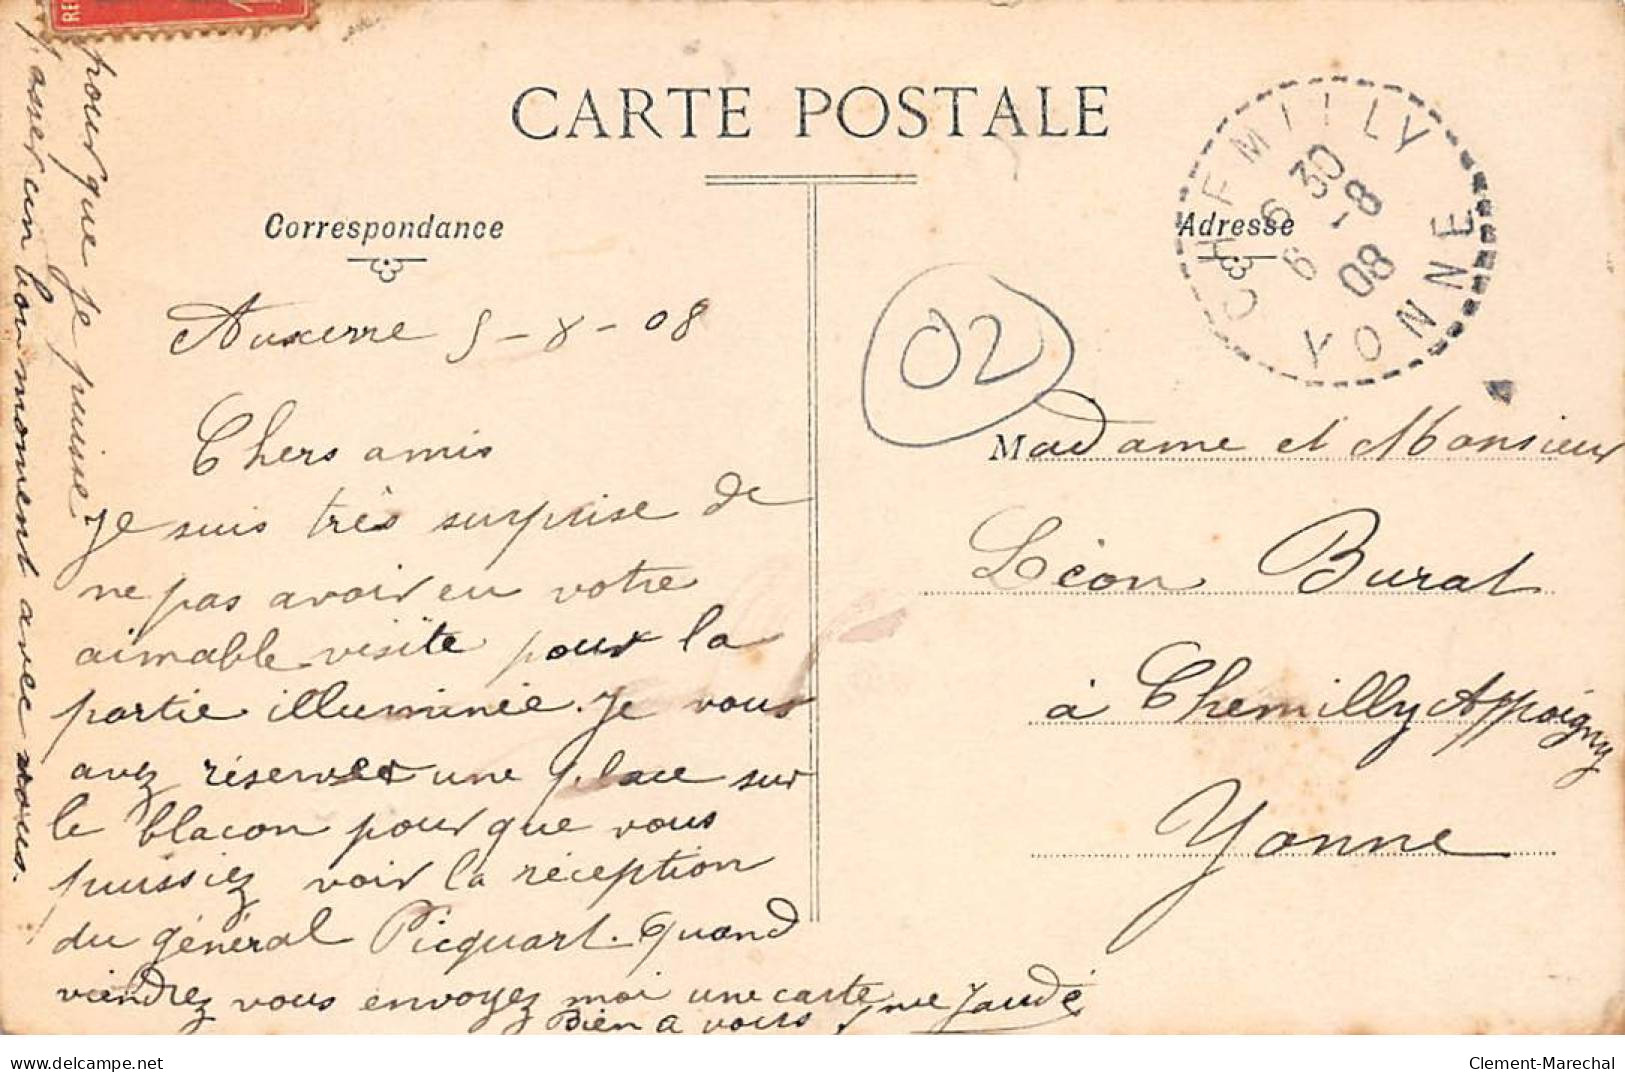 CARTE POSTALE
Correspondance
Adresse
CHEMILLY
6 30
6 -8
08
YONNE
02
Auxerre 5-8-08
Chers amis
Je suis très surprise de
ne pas avoir eu votre
aimable visite pour la
partie illuminée. Je vous
avez réserver une place sur
le blacon pour que vous
puissiez voir la réception
du général Picquart. Quand
viendrez vous envoyez moi une carte
pour que je puisse
passer un bon moment avec vous.
Bien a vous
Madame et Monsieur
Léon Burat
à Chemilly Appoigny
Yonne
delcampe.net
Clement-Marechal